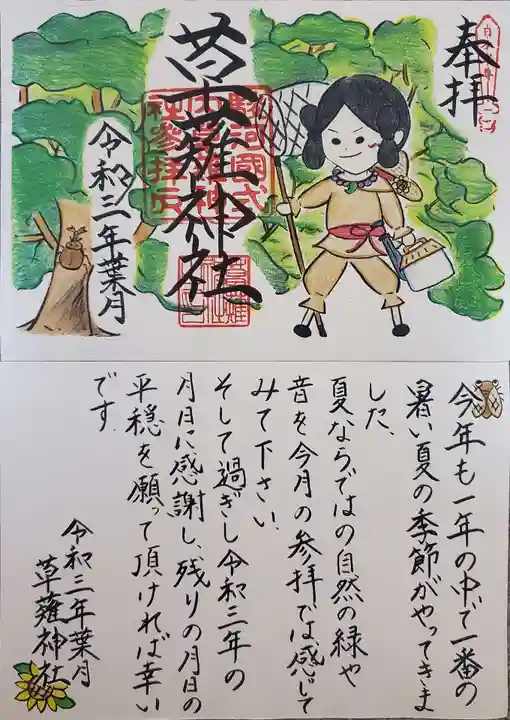 奉拝
草薙神社
令和三年葉月
今年も一年の中で一番の
暑い夏の季節がやってきま
した、
夏ならではの自然の緑や
音を今月の参拝では感じて
みて下さい、
そして過ぎし令和三年の
月日に感謝し、残りの月日の
平穏を願って頂ければ幸い
です
令和三年葉月
草薙神社